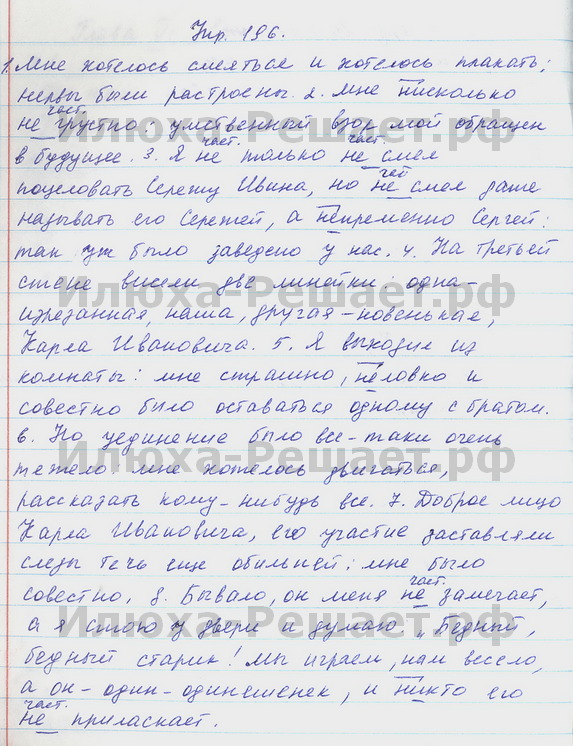 Упр. 196.
1. Мне хотелось смеяться и хотелось плакать:
нервы были растроены. 2. Мне нисколько
част.
не грустно: умственный взор мой обращен
част. част.
в будущее. 3. Я не только не смел
част
поцеловать Сережу Ивина, но не смел даже
называть его Сережей, а непременно Сергей:
так уж было заведено у нас. 4. На третьей
стене висели две линейки: одна-
изрезанная, наша, другая - новенькая,
Карла Ивановича. 5. Я выходил из
комнаты: мне страшно, неловко и
совестно было оставаться одному с братом.
6. Но уединение было все-таки очень
тяжело: мне хотелось двигаться,
рассказать кому-нибудь все. 7. Доброе лицо
Карла Ивановича, его участие заставляли
слезы течь еще обильней: мне было
част.
совестно. 8. Бывало, он меня не замечает,
а я стою у двери и думаю. „Бедный,
бедный старик! Мы играем, нам весело,
а он - один-одинешенек, и никто его
част.
не приласкает.
Илюха-Решает.рф
Илюха-Решает.рф
Илюха-Решает.рф
Илюха-Решает.рф